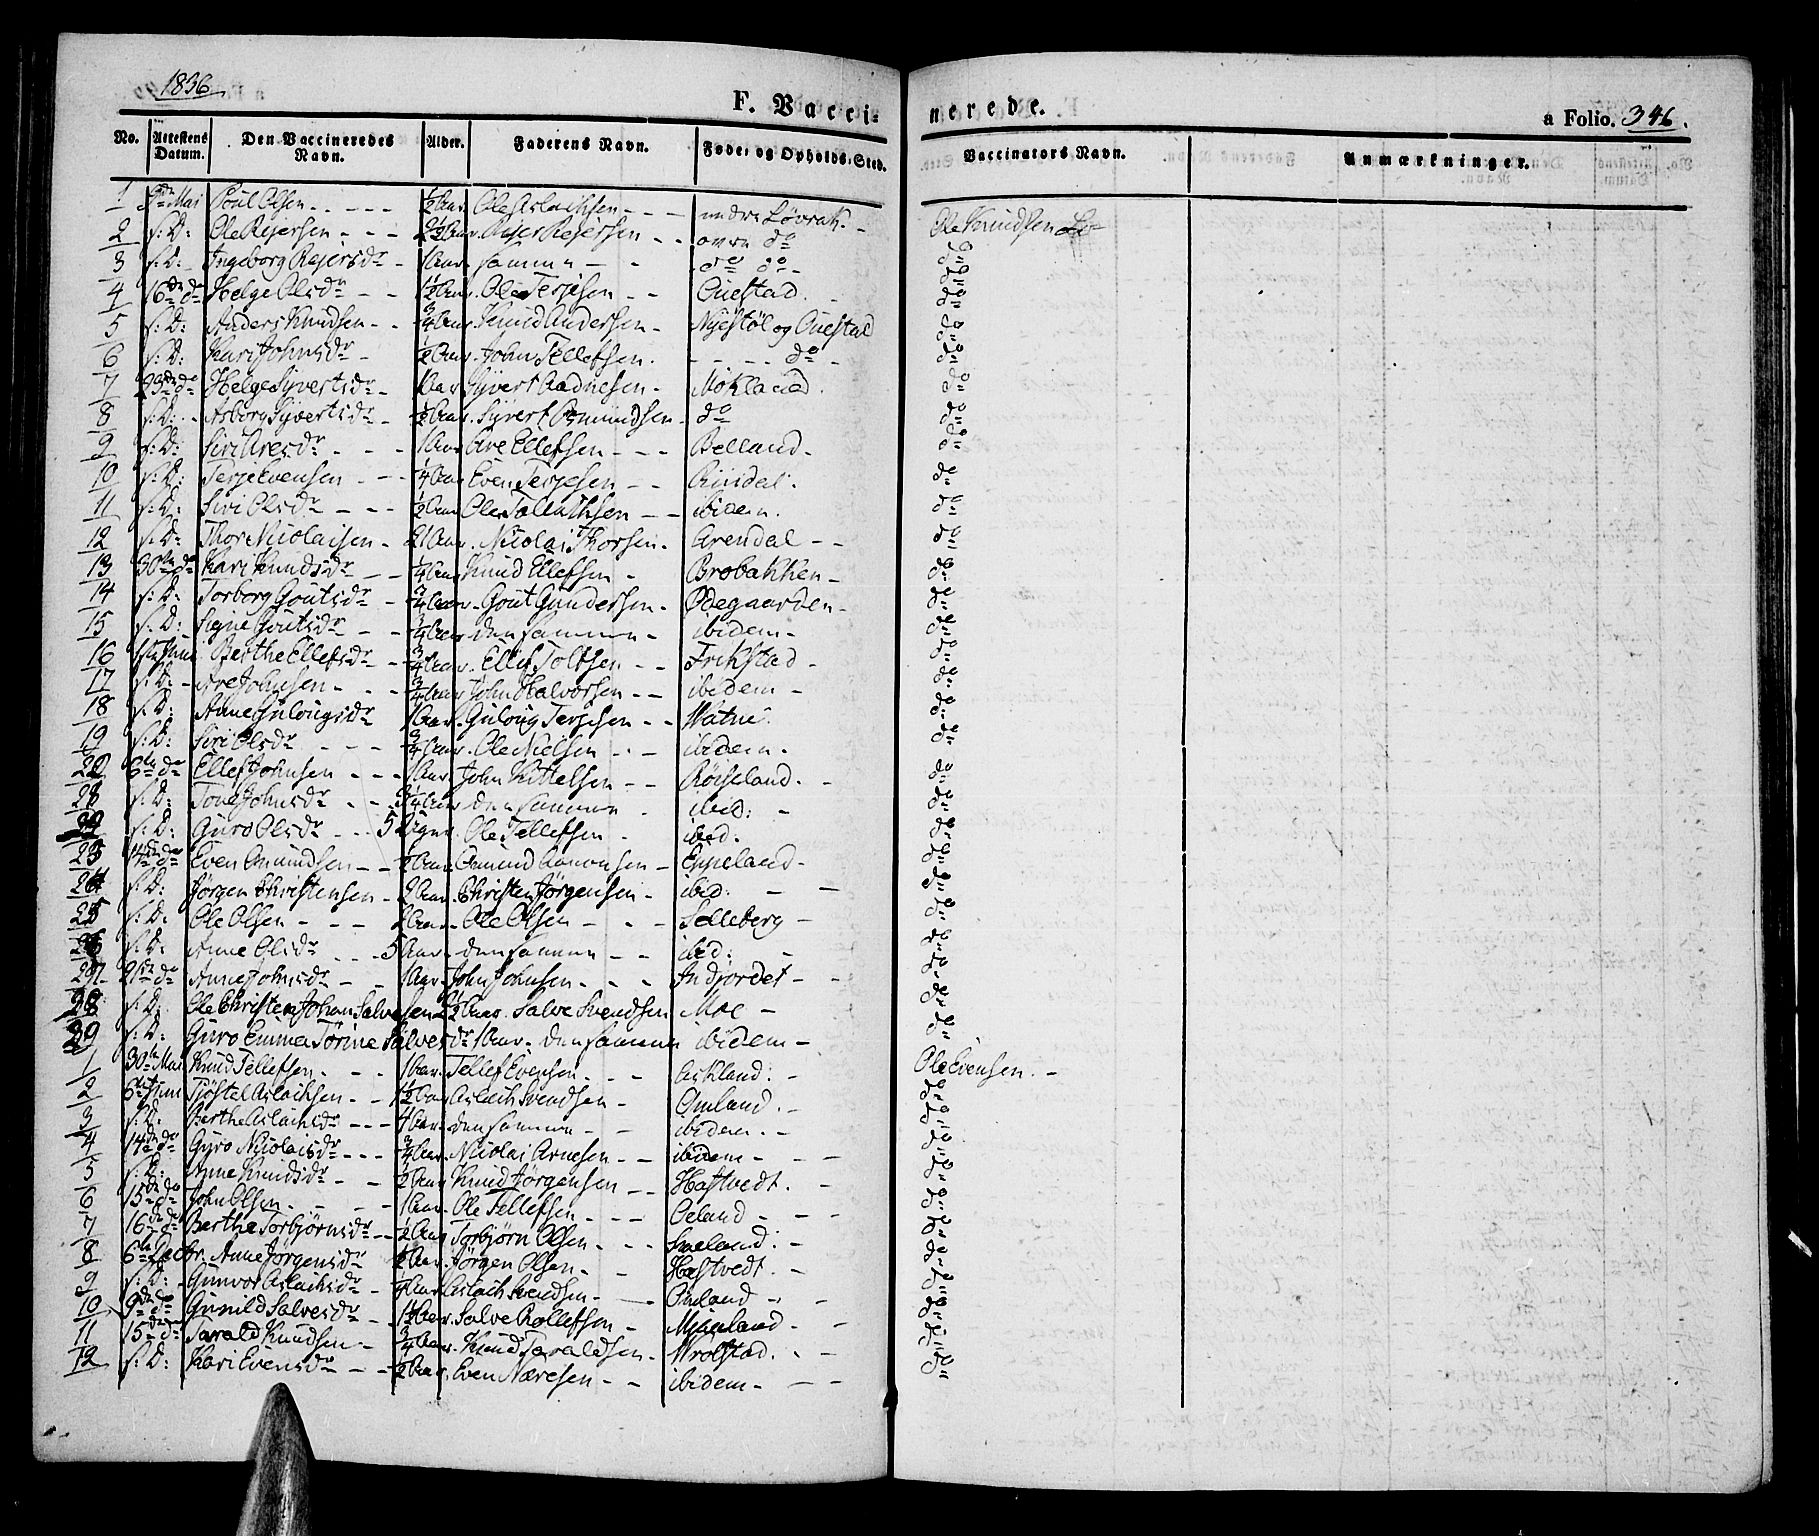 1836
F. Vacci-
nerede.
a Folio. 346.
No. Attestens Datum. Den Vaccineredes Navn. Alder. Faderens Navn. Føde- og Opholds-Sted. Vaccinators Navn. Anmærkninger.
1 9de Mai Poul Olsen - - - - ½ Aar. Ole Aslachsen - - - nedre Løvrak. - Ole Knudsen
2 s: D: Ole Rejersen - - - 2½ Aar. Rejer Rejersen - - øvre do do
3 s: D: Ingeborg Rejersdr - 1 Aar. samme - - do do - do
4 16de do Helge Olsdr - - 1½ Aar. Ole Terjesen - - Ouestad. do
5 s: D: Anders Knudsen - - ¾ Aar. Knud Andersen - Nyestøl og Ouestad do
6 s: D: Kari Johnsdr - ½ Aar. John Tellefsen. - - - - do - do
7 23de do Helge Syvertsdr - 1 Aar Syvert Aadnesen - Mokland. do
8 s: D: - Asborg Syvertsdr - ½ Aar. Syvert Osmundsen - do do
9 s: D: Siri Aresdr - - - 1 Aar Are Ellefsen - - - Belland - do
10 s: D: Terje Evensen - - - ¼ Aar. Even Terjesen - - Rindal. do
11 s: D: Siri Olsdr - - - ½ Aar Ole Tallachsen - - ibidem. do
12 s: D: Thor Nicolaisen - 21 Aar. Nicolai Thorsen - Arendal - - do
13 30te do Kari Knudsdr - - ¼ Aar Knud Ellefsen - Brobakken - do
14 s: D: Torborg Goutsdr - - ¾ Aar. Gout Gundersen - Ødegaarden - do
15 s: D: Signe Goutsdr - - ¾ Aar den samme - ibidem - do
16 1ste Juni Berthe Ellefsdr - - ¾ Aar. Ellef Tolfsen - - Frikstad - do
17 s: D: - Are Johnsen - - - ¾ Aar. John Halvorsen - - ibidem - do
18 s: D: Anne Gulougsdr 1 Aar. Guloug Terjesen - - Watne. do
19 s: D: Siri Olsdr - - - ¾ Aar. Ole Nielsen - - ibidem - do
20 6te do Ellef Johnsen - - - 1 Aar John Kittelsen - - Røiseland. - do
21 s: D: Tone Johnsdr - - - 3¼ Aar den samme - ibid: - do
22 s: D: Guro Olsdr - - - 5 Uger. Ole Tellefsen - ibid. do
23 14de do Even Omundsen - - ½ Aar. Omund Aanonsen - Eppeland - do
24 s: D: Jørgen Christensen - 2 Aar. Christen Jørgensen - ibid: - - do
25 s: D: Ole Olsen - - - - 2 Aar. Ole Olsen - - - Solleberg - do
26 s: D: Anne Olsdr - - - 5 Aar. den samme - - ibid: - do
27 21ste do Anne Johnsdr - - 1 Aar. John Johnsen - - - Indjordet - - do
28 s: D: Ole Christen Johan Salvesen 2½ Aar. Salve Svendsen Moe - do
29 s: D: Guro Emma Tørine Salvesdr 1 Aar. den samme ibidem - do
1 30te Mai Knud Tellefsen - - - 1 Aar. Tellef Evensen - - - Askland: - Ole Evensen. -
2 6te Juni Tjøstel Aslachsen - - 1½ Aar Aslach Svendsen - Omland. - do
3 s: D: Berthe Aslachsdr - - - 4 Aar. den samme - - ibidem. - do
4 14de do Gyro Nicolaisdr - - - ¾ Aar. Nicolai Arnesen - - ibidem - - - do
5 s: D: Anne Knudsdr - - ½ Aar. Knud Jørgensen - - Hastvedt. - do
6 15de do John Olsen - - - - 1 Aar. Ole Tellefsen - - - Oeland - - - do
7 16de do Berthe Torbjørnsdr - - ½ Aar Torbjørn Olsen - - - Sveland: - do
8 6te Decbr. Anne Jørgensdr ½ Aar. Jørgen Olsen - - Hastvedt. - do
9 s: D: - Gunvor Aslachsdr - ¼ Aar Aslach Svendsen - - Omland - - do
10 9de do Gunild Salvesdr - - 1½ Aar. Salve Rollefsen - Mjaaland. - - do
11 15de do Tarald Knudsen - - ¾ Aar. Knud Taraldsen - Wrolstad. - - do
12 s: D: Kari Evensdr - - - ½ Aar. Even Næresen - - ibidem - - - do